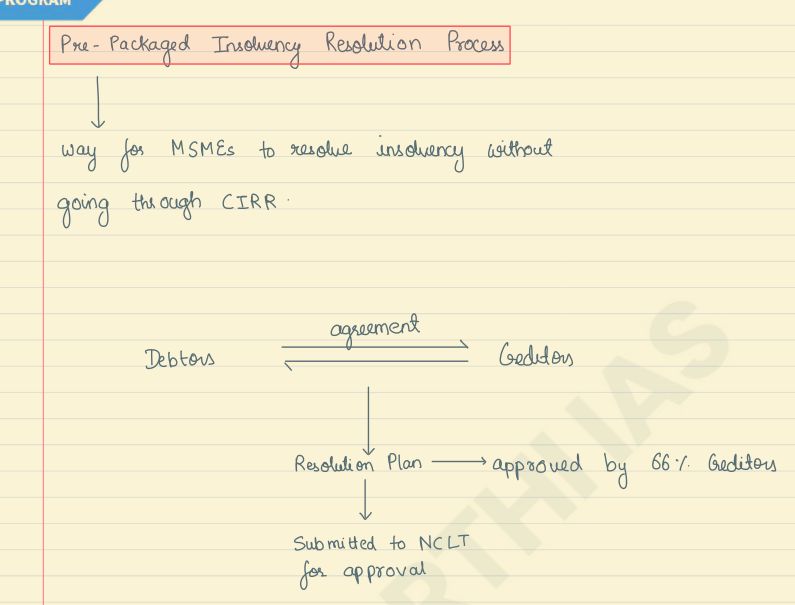 PROGRAM
Pre-Packaged Insolvency Resolution Process
way for MSMEs to resolve insolvency without
going through CIRR.
agreement
Debtors Creditors
Resolution Plan → approved by 66% Creditors
Submitted to NCLT
for approval
IAS